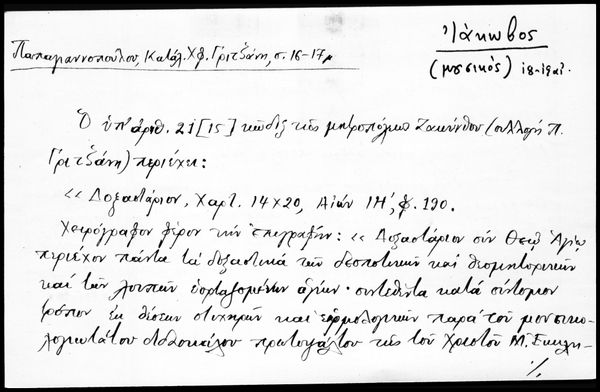 Ἰάκωβος
(μουσικός) 18-19 αἰ.
Παπαγιαννοπούλου, Κατάλ. Χφ. Γριτσάνη, σ. 16-17
Ὁ ὑπ' ἀριθ. 21 [15] κῶδιξ τῆς μητροπόλεως Ζακύνθου (συλλογή Π.
Γριτσάνη) περιέχει:
<< Δοξαστάριον, Χαρτ. 14×20, Αἰών ΙΗ', φ. 190.
Χειρόγραφον φέρον τήν ἐπιγραφήν: << Δοξαστάριον σύν Θεῷ Ἁγίῳ
περιέχον πάντα τά δοξαστικά τῶν δεσποτικῶν καί θεομητορικῶν
καί τῶν λοιπῶν ἑορταζομένων ἁγίων· συντεθέντα κατά σύντομον
τρόπον ἐκ θέσεων στιχηρῶν καί εἱρμολογικῶν παρά τοῦ μουσικο-
λογιωτάτου διδασκάλου πρωτοψάλτου τῆς τοῦ Χριστοῦ Μ. Ἐκκλη-
./.